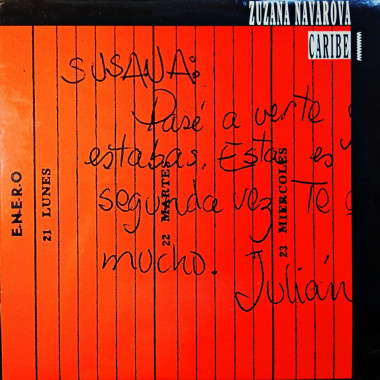 ZUZANA NAVAROVA
CARIBE
SUSANA:
Pasé a verte
estabas. Esta es
segunda vez Te
mucho.
Julián
E.N.E.R.O
21 LUNES
22 MARTES
23 MIERCOLES